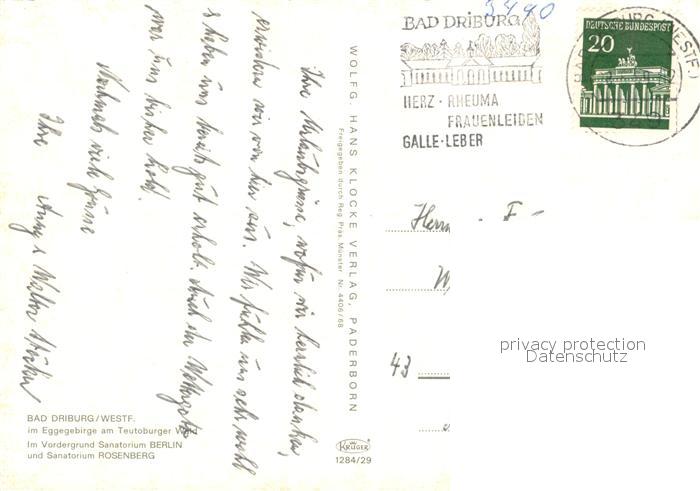 3490
BAD DRIBURG
HERZ · RHEUMA
FRAUENLEIDEN
GALLE · LEBER
DEUTSCHE BUNDESPOST
20
Ihre Urlaubsgrüsse, wofür wir herzlich danken,
erwidern wir von hier aus. Wir fühlen uns sehr wohl
haben uns bereits gut erholt. Auch der Wettergott
war uns bisher hold.
Nochmals viele Grüsse
Ihre
Anny & Walter
WOLFG. HANS KLOCKE VERLAG, PADERBORN
Freigegeben durch Reg. Präs. Münster Nr. 4406/68
Herrn F
W
43
privacy protection
Datenschutz
BAD DRIBURG/WESTF.
im Eggegebirge am Teutoburger Wald
Im Vordergrund Sanatorium BERLIN
und Sanatorium ROSENBERG
KRÜGER
1284/29